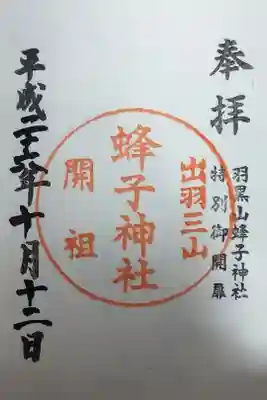 奉拝
羽黒山蜂子神社
特別御開扉
出羽三山
蜂子神社
開祖
平成二十六年十月十二日